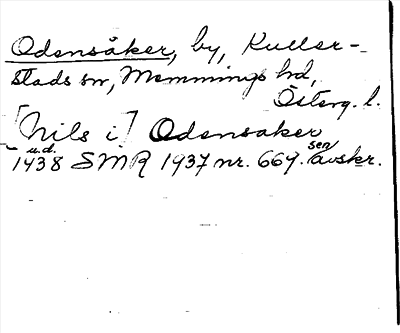 Odensåker, by, Kuller-
stads sn, Memmings hd,
Österg. l.
[Nils i] Odensaker
u.d. sen
1438 SMR 1937 nr. 669. avskr.